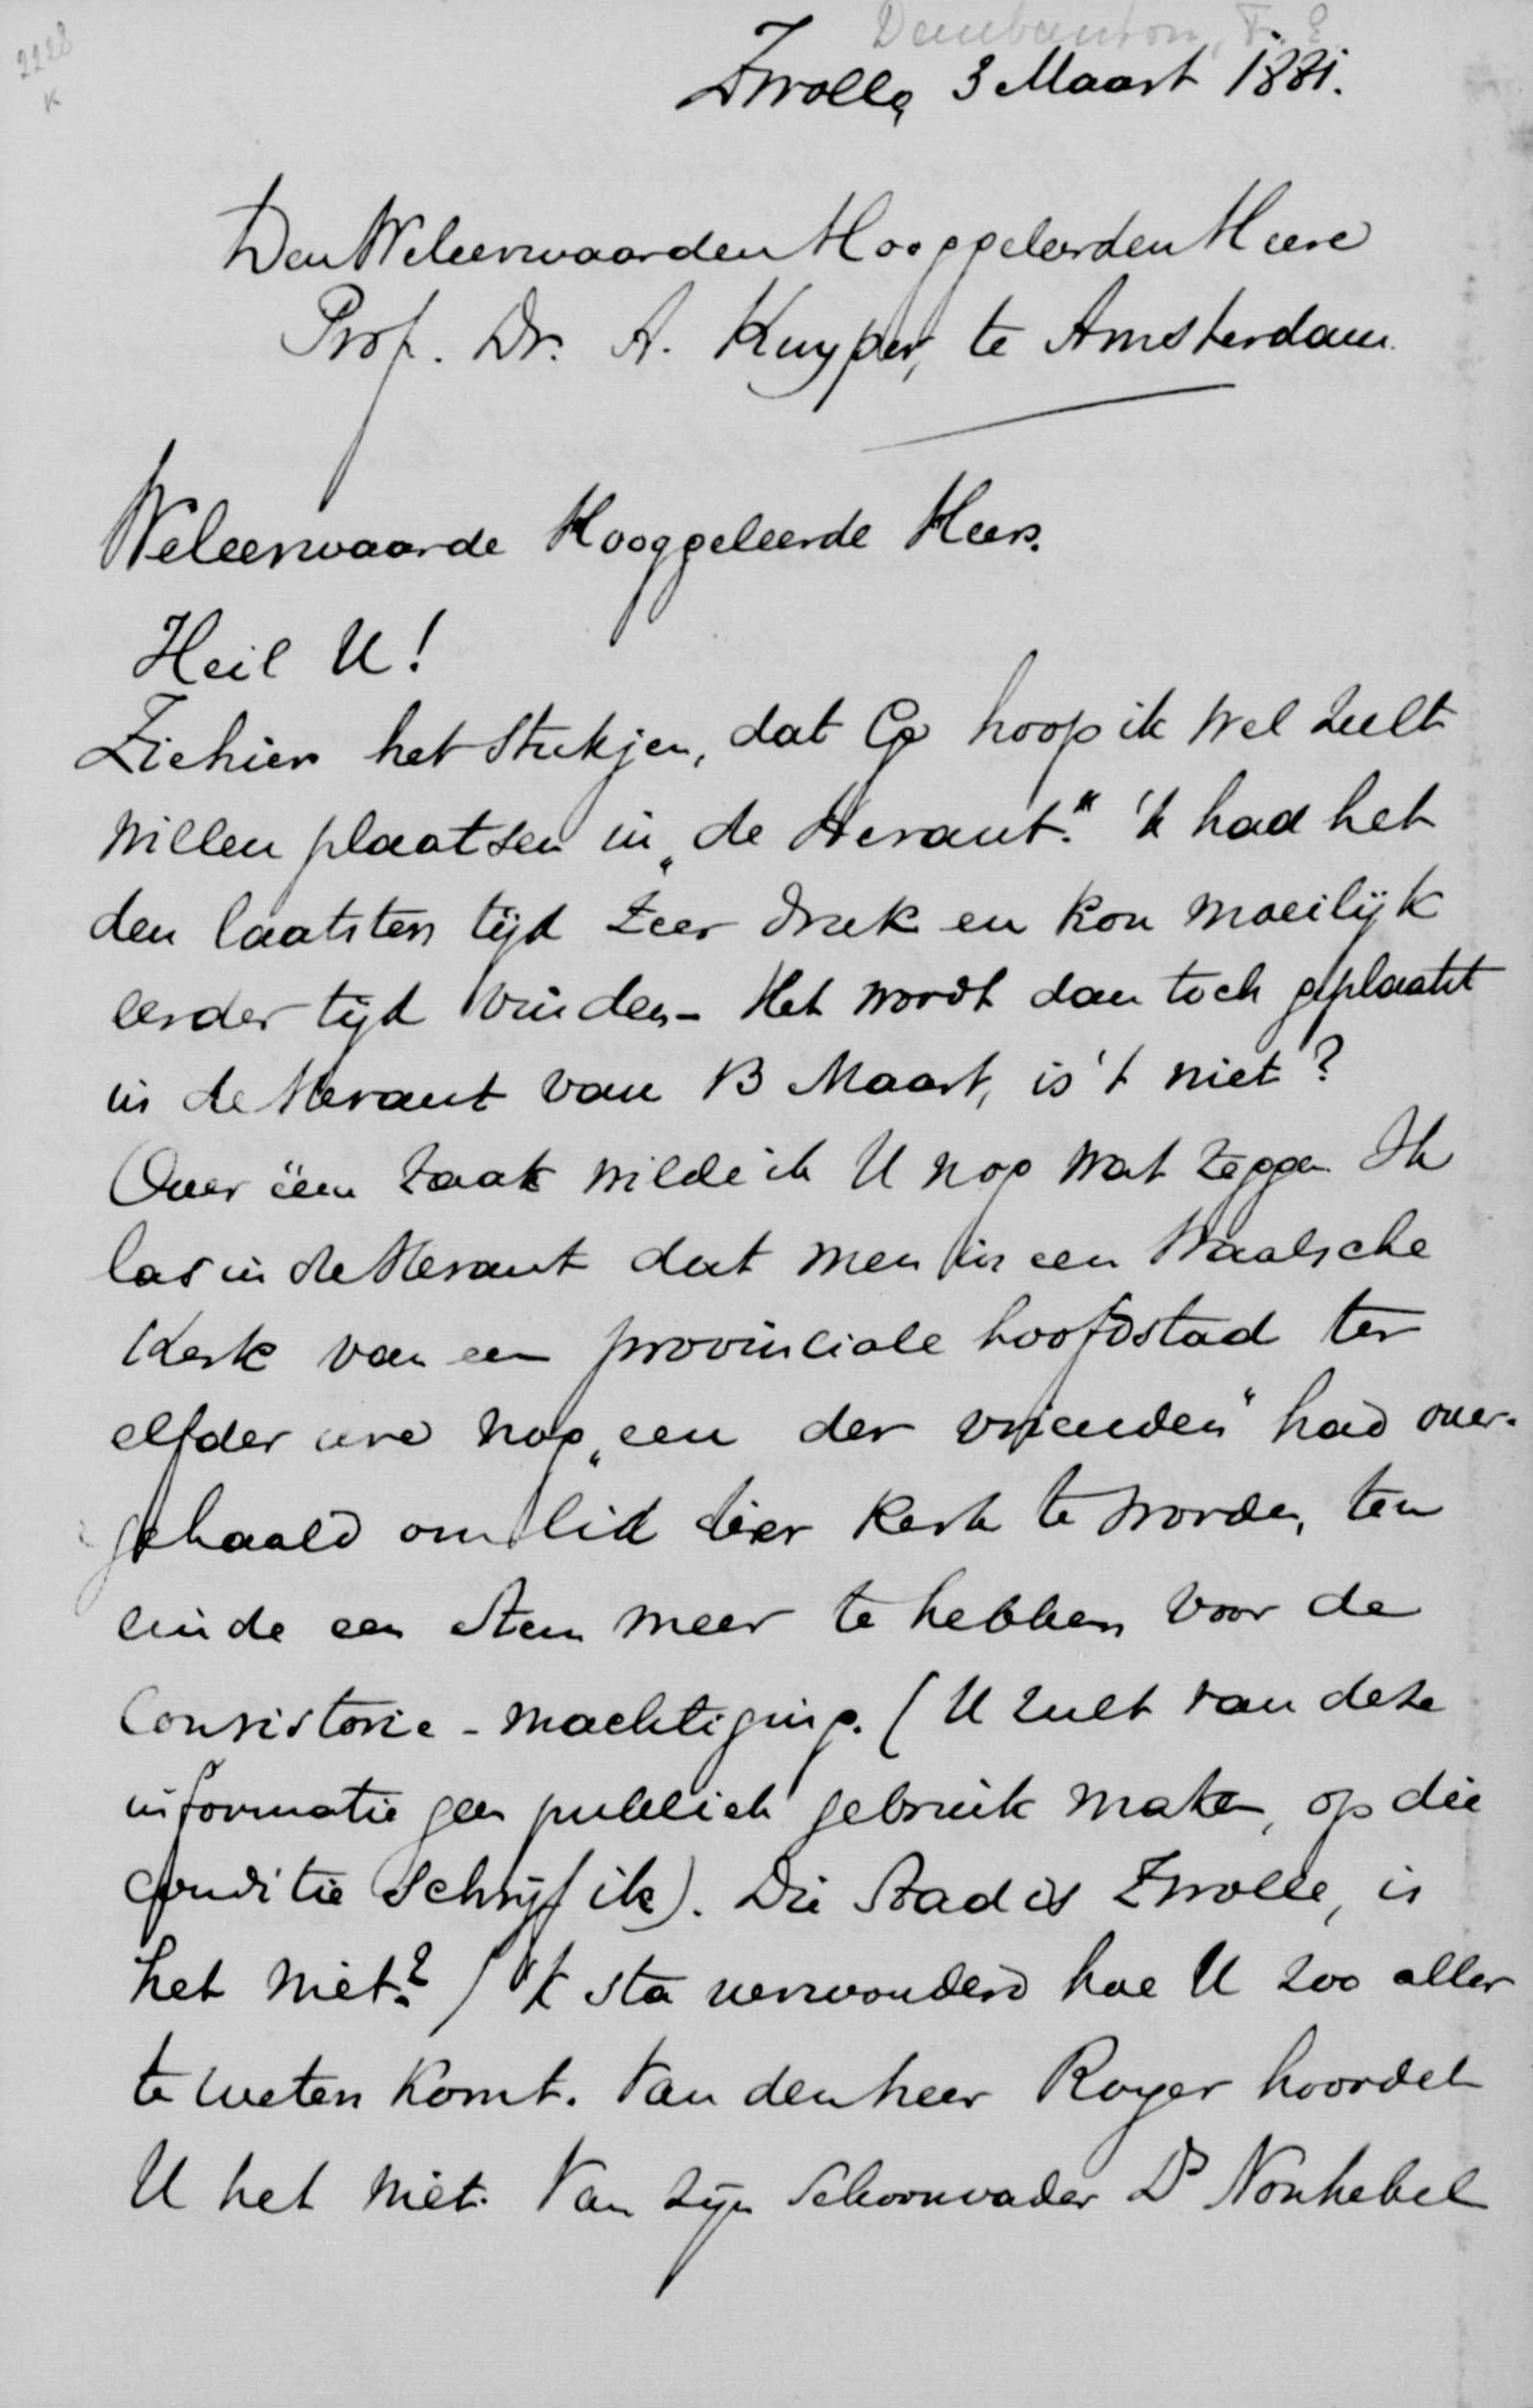 2228
K
Daubanton, F. E
Zwolle, 3 Maart 1881.
Den Weleerwaarden Hooggeleerden Heere
Prof. Dr. A. Kuyper, te Amsterdam.
Weleerwaarde Hooggeleerde Heer.
Heil U!
Ziehier het stukjen, dat Gij hoop ik wel zult
willen plaatsen in „de Heraut." 'k had het
den laatsten tijd zeer druk en kon moeilijk
eerder tijd vinden - Het wordt dan toch geplaatst
in de Heraut van 13 Maart, is 't niet?
Over één zaak wilde ik U nog wat zeggen. Ik
las in de Heraut dat men in een Waalsche
Kerk van een provinciale hoofdstad ter
elfder ure nog „een der vrienden" had over-
gehaald om lid dier Kerk te worden, ten
einde een stem meer te hebben voor de
Consistorie-machtiging. (U zult van deze
informatie geen publiek gebruik maken, op die
conditie schrijf ik). Die Stad is Zwolle, is
het niet? / 'k sta verwonderd hoe U zoo alles
te weten komt. Van den heer Royer hoordet
U het niet. Van zijn Schoonvader Ds Nonhebel